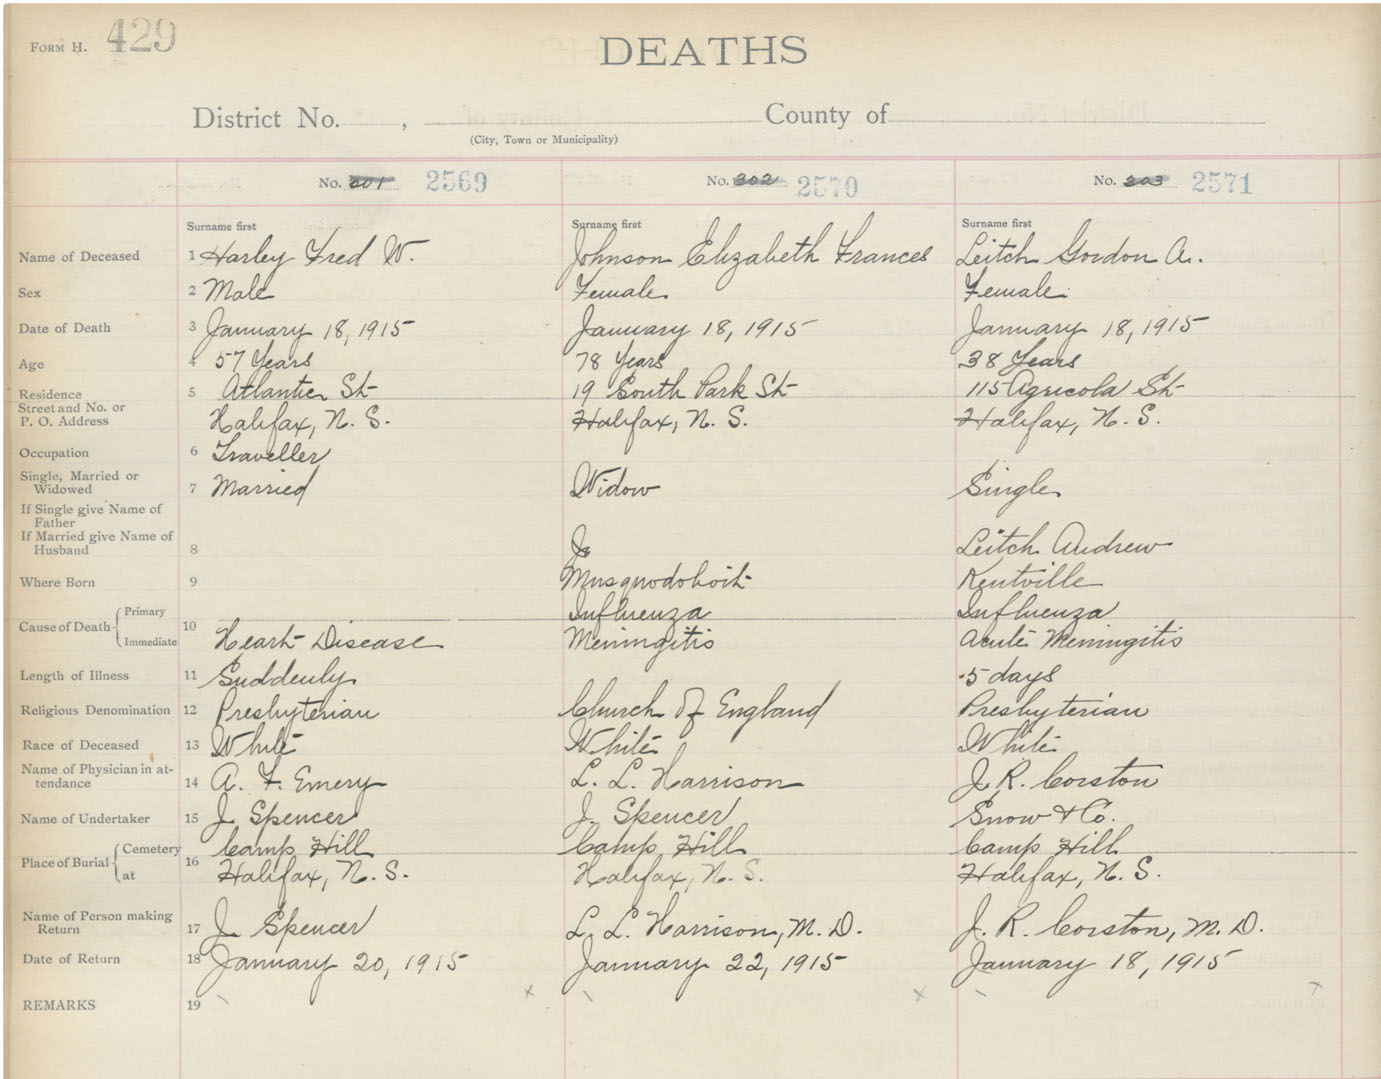 FORM H. 429
DEATHS
District No. , County of
(City, Town or Municipality)
No. 201 2569 No. 202 2570 No. 203 2571
Surname first Surname first Surname first
Name of Deceased 1 Harley Fred W. Johnson Elizabeth Frances Leitch Gordon A.
Sex 2 Male Female Female
Date of Death 3 January 18, 1915 January 18, 1915 January 18, 1915
Age 4 57 Years 78 Years 38 Years
Residence 5 Atlantic St 19 South Park St 115 Agricola St
Street and No. or
P. O. Address Halifax, N. S. Halifax, N. S. Halifax, N. S.
Occupation 6 Traveller
Single, Married or
Widowed 7 Married Widow Single
If Single give Name of
Father
If Married give Name of
Husband 8 J. Leitch Andrew
Where Born 9 Musquodoboit Kentville
Cause of Death Primary 10 Influenza Influenza
Immediate Heart Disease Meningitis Acute Meningitis
Length of Illness 11 Suddenly 5 days
Religious Denomination 12 Presbyterian Church of England Presbyterian
Race of Deceased 13 White White White
Name of Physician in at-
tendance 14 A. F. Emery L. L. Harrison J. R. Corston
Name of Undertaker 15 J. Spencer J. Spencer Snow & Co.
Place of Burial Cemetery 16 Camp Hill Camp Hill Camp Hill
at Halifax, N. S. Halifax, N. S. Halifax, N. S.
Name of Person making
Return 17 J. Spencer L. L. Harrison, M. D. J. R. Corston, M. D.
Date of Return 18 January 20, 1915 January 22, 1915 January 18, 1915
REMARKS 19